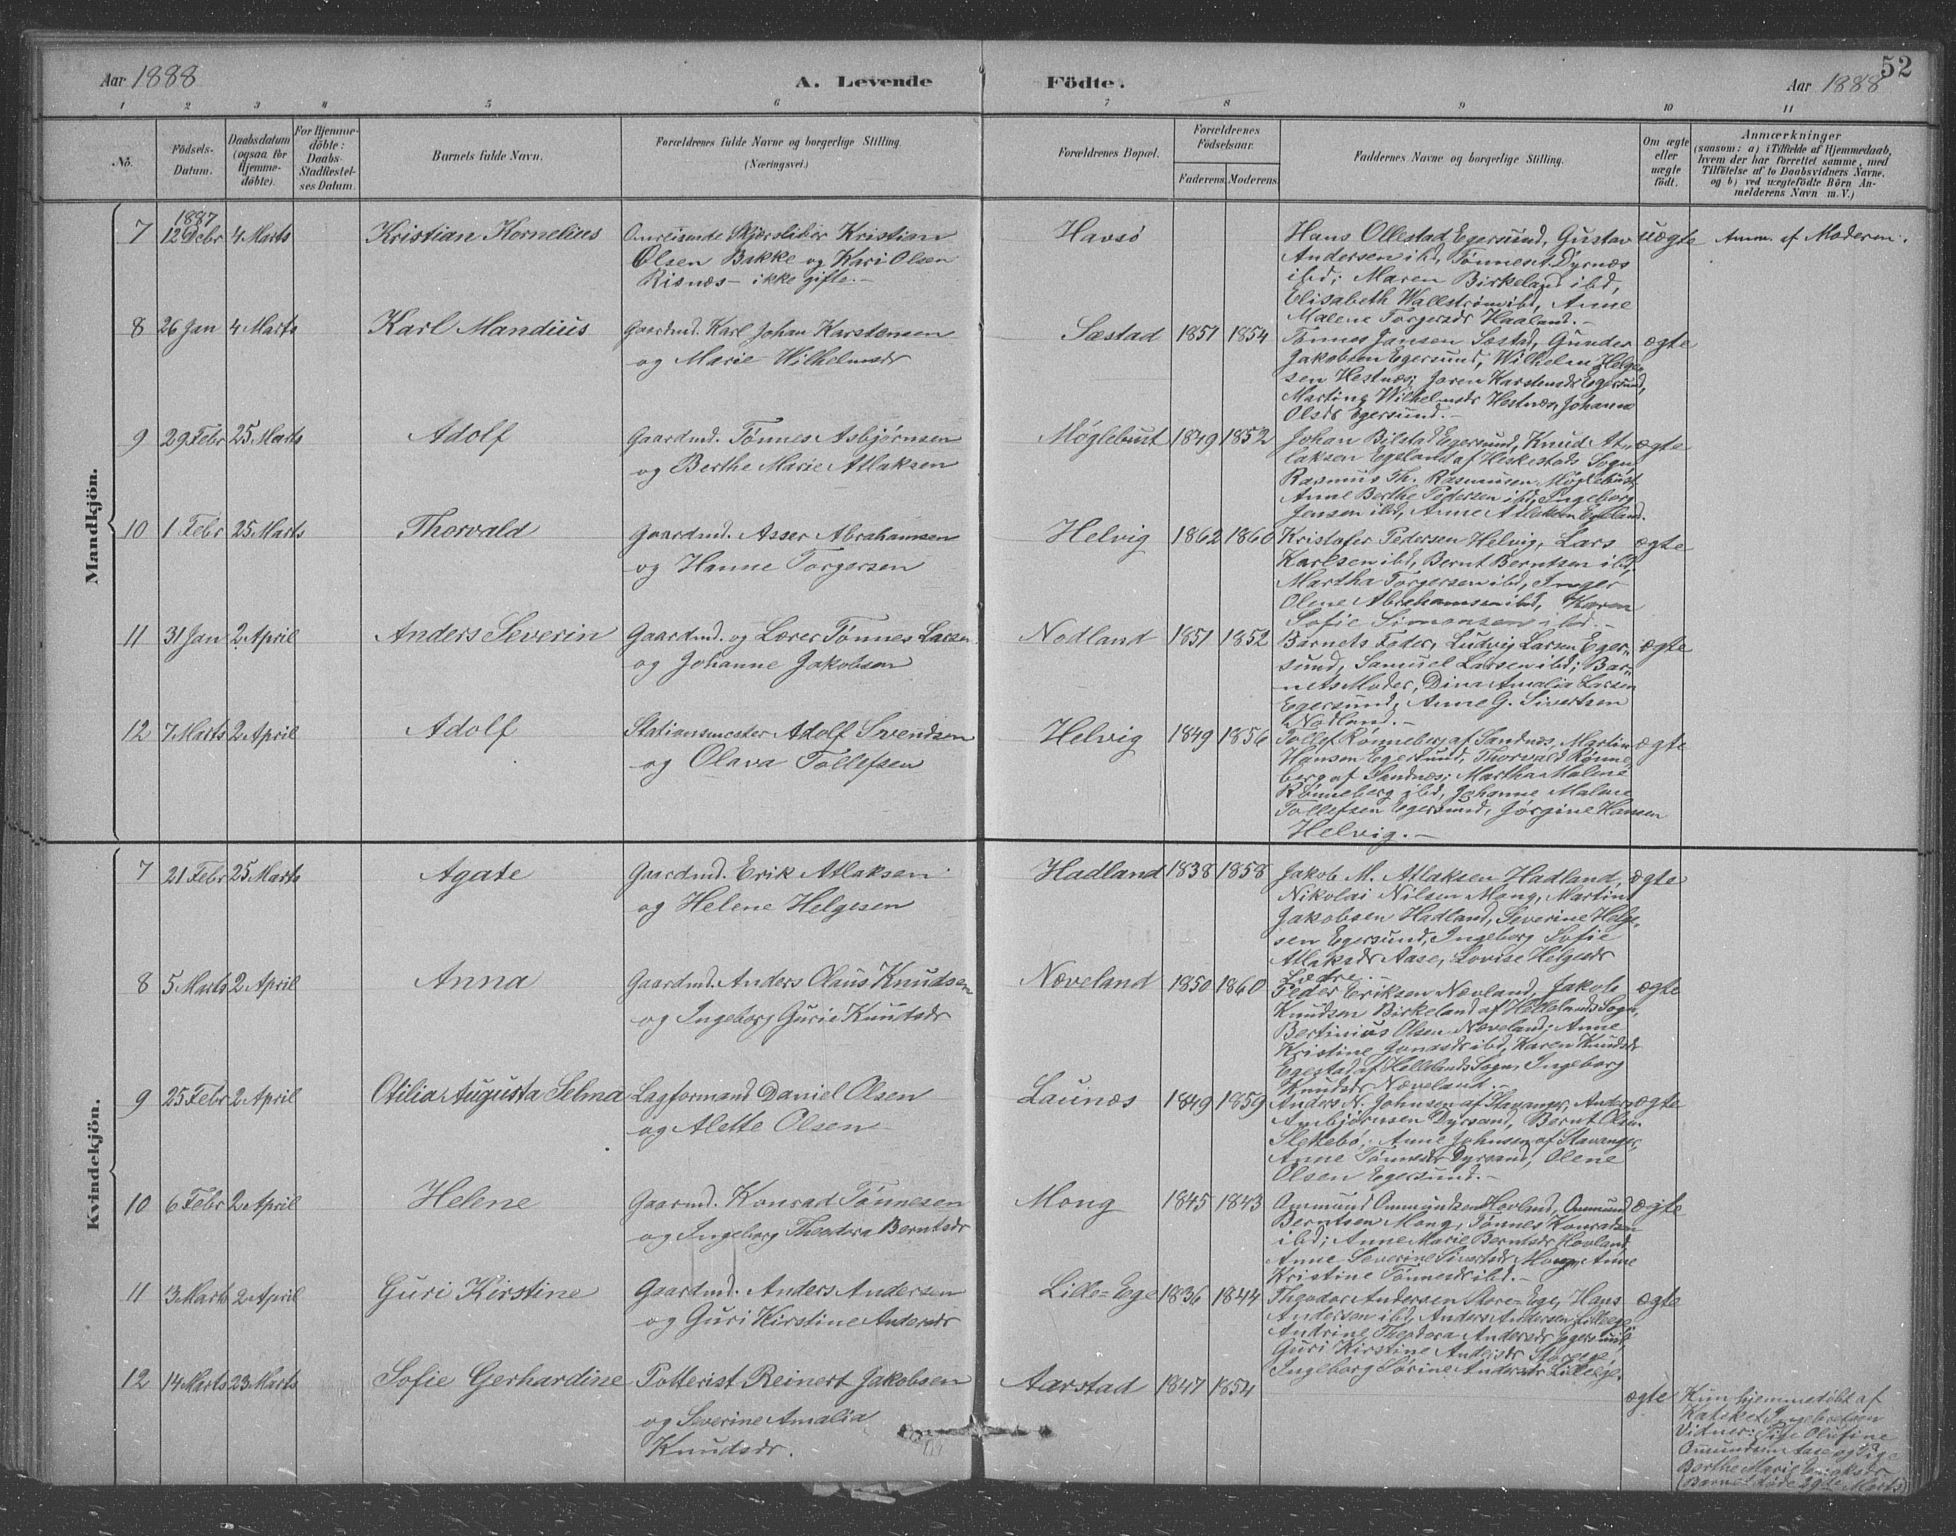 52
Aar 1888
A. Levende
Födte.
Aar 1888
1 2 3 4 5 6 7 8 9 10 11
No.
Födsels-
Datum.
Daabsdatum
(ogsaa for
Hjemme-
döbte).
For Hjemme-
döbte:
Daabs-
Stadfæstel-
ses Datum.
Barnets fulde Navn.
Forældrenes fulde Navne og borgerlige Stilling.
(Næringsvei.)
Forældrenes Bopæl.
Forældrenes
Födselsaar.
Faderens. Moderens.
Faddernes Navne og borgerlige Stilling.
Om ægte
eller
uægte
födt.
Anmærkninger
(saasom: a) i Tilfælde af Hjemmedaab,
hvem der har forrettet samme, med
Tilföielse af to Daabsvidners Navne.
og b) ved uægtefödte Börn An-
melderens Navn m. V.)
Mandkjön.
7
1887
12 Debr
4 Marts
Kristian Kornelius
Omreisende Skjærsliber Kristian
Olsen Bakke og Kari Olsen
Risnæs – ikke gifte. –
Havsø
Hans Ollestad Egersund, Gustav
Andersen ibd, Tønnes Dyrnæs
ibd; Maren Birkeland ibd,
Elisabeth Wallstrøm ibd, Anne
Malene Torgersdr Haaland. –
uægte
Anm. af Moderen.
8
26 Jan
4 Marts
Karl Mandius
Gaardmd. Karl Johan Karstensen
og Marie Wilhelmsdr
Sæstad
1851
1854
Tønnes Jansen Sæstad, Gunder
Jakobsen Egersund, Wilhelm Helge-
sen Hestnæs; Joren Karstensdr Egersund,
Martine Wilhelmsdr Hestnæs, Johanne
Olsdr Egersund. –
ægte
9
29 Febr
25 Marts
Adolf
Gaardmd. Tønnes Asbjørnsen
og Berthe Marie Atlaksen
Møglebust
1849
1852
Johan Bilstad Egersund, Knud At-
laksen Egeland af Heskestads Sogn,
Rasmus Th. Rasmusen Møglebust,
Anne Berthe Pedersen ibd, Ingeborg
Jensen ibd, Anne Atlaksen Egeland.
ægte
10
1 Febr
25 Marts
Thorvald
Gaardmd. Asser Abrahamsen
og Hanne Torgersen
Helvig
1862
1860
Kristofer Pedersen Helvig, Lars
Karlsen ibd, Bernt Berntsen ibd,
Martha Torgersen ibd, Inger
Olene Abrahamsen ibd, Karen
Sofie Simonsen ibd. –
ægte
11
31 Jan
2 April
Anders Severin
Gaardmd. og Lærer Tønnes Larsen
og Johanne Jakobsen
Nodland
1851
1852
Barnets Fader, Ludvig Larsen Eger-
sund, Samuel Larsen ibd; Bar-
nets Moder, Dina Amalia Larsen
Egersund, Anne G. Sivertsen
Nodland. –
ægte
12
7 Marts
2 April
Adolf
Stationsmester Adolf Svendsen
og Olava Tollefsen
Helvig
1849
1856
Tollef Rønneberg af Sandnæs, Martin
Hansen Egersund, Thorvald Rønne-
berg af Sandnæs; Martha Malene
Rønneberg ibd, Johanne Malene
Tollefsen Egersund, Jørgine Hansen
Helvig. –
ægte
Kvindekjön.
7
21 Febr
25 Marts
Agate
Gaardmd. Erik Atlaksen
og Helene Helgesen
Hadland
1838
1858
Jakob M. Atlaksen Hadland,
Nikolai Nilsen Mong, Martin
Jakobsen Hadland, Severine Helge-
sen Egersund, Ingeborg Sofie
Atlaksdr Aase, Lovise Helgesdr
ægte
8
5 Marts
2 April
Anna
Gaardmd. Anders Olaus Knudsen
og Ingeborg Gurie Knudsdr
Næveland
1850
1860
Peder Eriksen Næveland, Jakob
Knudsen Birkeland af Hellelands Sogn,
Bertinius Olsen Næveland; Anne
Kristine Jonasdr ibd, Karen Knudsdr
Egestad af Hellelands Sogn, Ingeborg
Knudsdr Næveland. –
ægte
9
25 Febr
2 April
Otilia Augusta Selma
Lagformand Daniel Olsen
og Alette Olsen
Launæs
1849
1859
Anders N. Johnsen af Stavanger, Anders
Asbjørnsen Dyrsand, Bernt Olsen
Slettebø; Anne Johnsen af Stavanger,
Anne Tønnesdr Dyrsand, Olene
Olsen Egersund. –
ægte
10
6 Febr
2 April
Helene
Gaarmd. Konrad Tønnesen
og Ingeborg Theodora Berntsdr
Mong
1845
1843
Ommund Ommundsen Hovland, Ommund
Berntsen Mong, Tønnes Konradsen
ibd; Anne Marie Berntsdr Hovland,
Anne Severine Sivertsdr Mong, Anne
Kristine Tønnesdr ibd. –
ægte
11
3 Marts
2 April
Guri Kirstine
Gaardmd. Anders Andersen
og Guri Kirstine Andersdr
Lille-Ege
1836
1844
Theodor Andersen Store-Ege, Hans
Andersen ibd, Anders Andersen Lilleege;
Andrine Theodora Andersdr Egersund,
Guri Kirstine Andersdr Storeege,
Ingeborg Sørine Andersdr Lilleege.
ægte
12
14 Marts
23 Marts
Sofie Gerhardine
Potterist Reinert Jakobsen
og Severine Amalia
Knudsdr.
Aarstad
1847
1854
ægte
Kun hjemmedöbt af
Katiket Ingebretsen
Vidner: Pige Olufine
Ommundsen Aase og Pige
Berthe Marie Eriksdr
(Barnet døde 29de Marts)